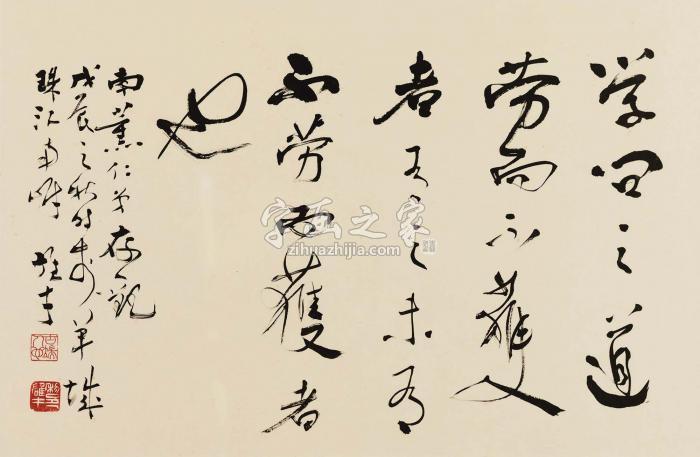 学问之道
劳而不獲
者有之未有
不劳而獲者
也
南薰仁弟存观
戊辰之秋时羊城
珠江南岸 雄才
字画之家
zihuazhijia.com